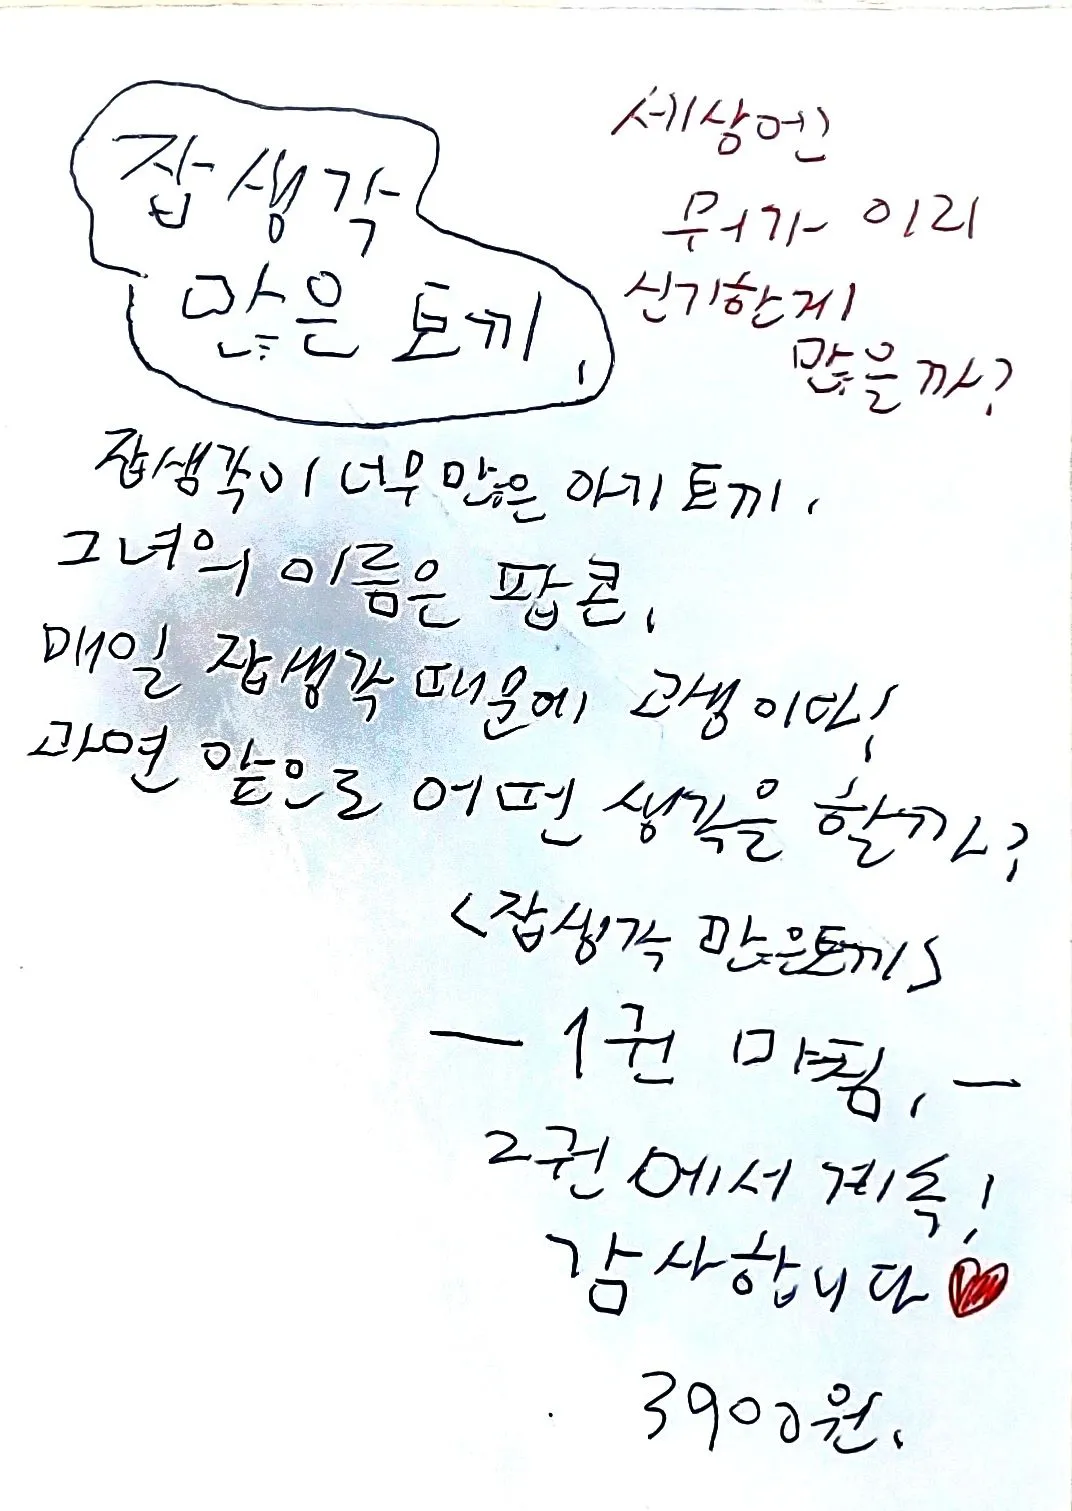 잡생각
많은 토끼,
세상엔
무가 이리
신기한게
많을까?
잡생각이 너무 많은 아기 토끼.
그녀의 이름은 팝콘.
매일 잡생각 때문에 고생이다!
과연 앞으로 어떤 생각을 할까?
<잡생각 많은토끼>
— 1권 마침. —
2권에서 계속!
감사합니다♥
3900원.